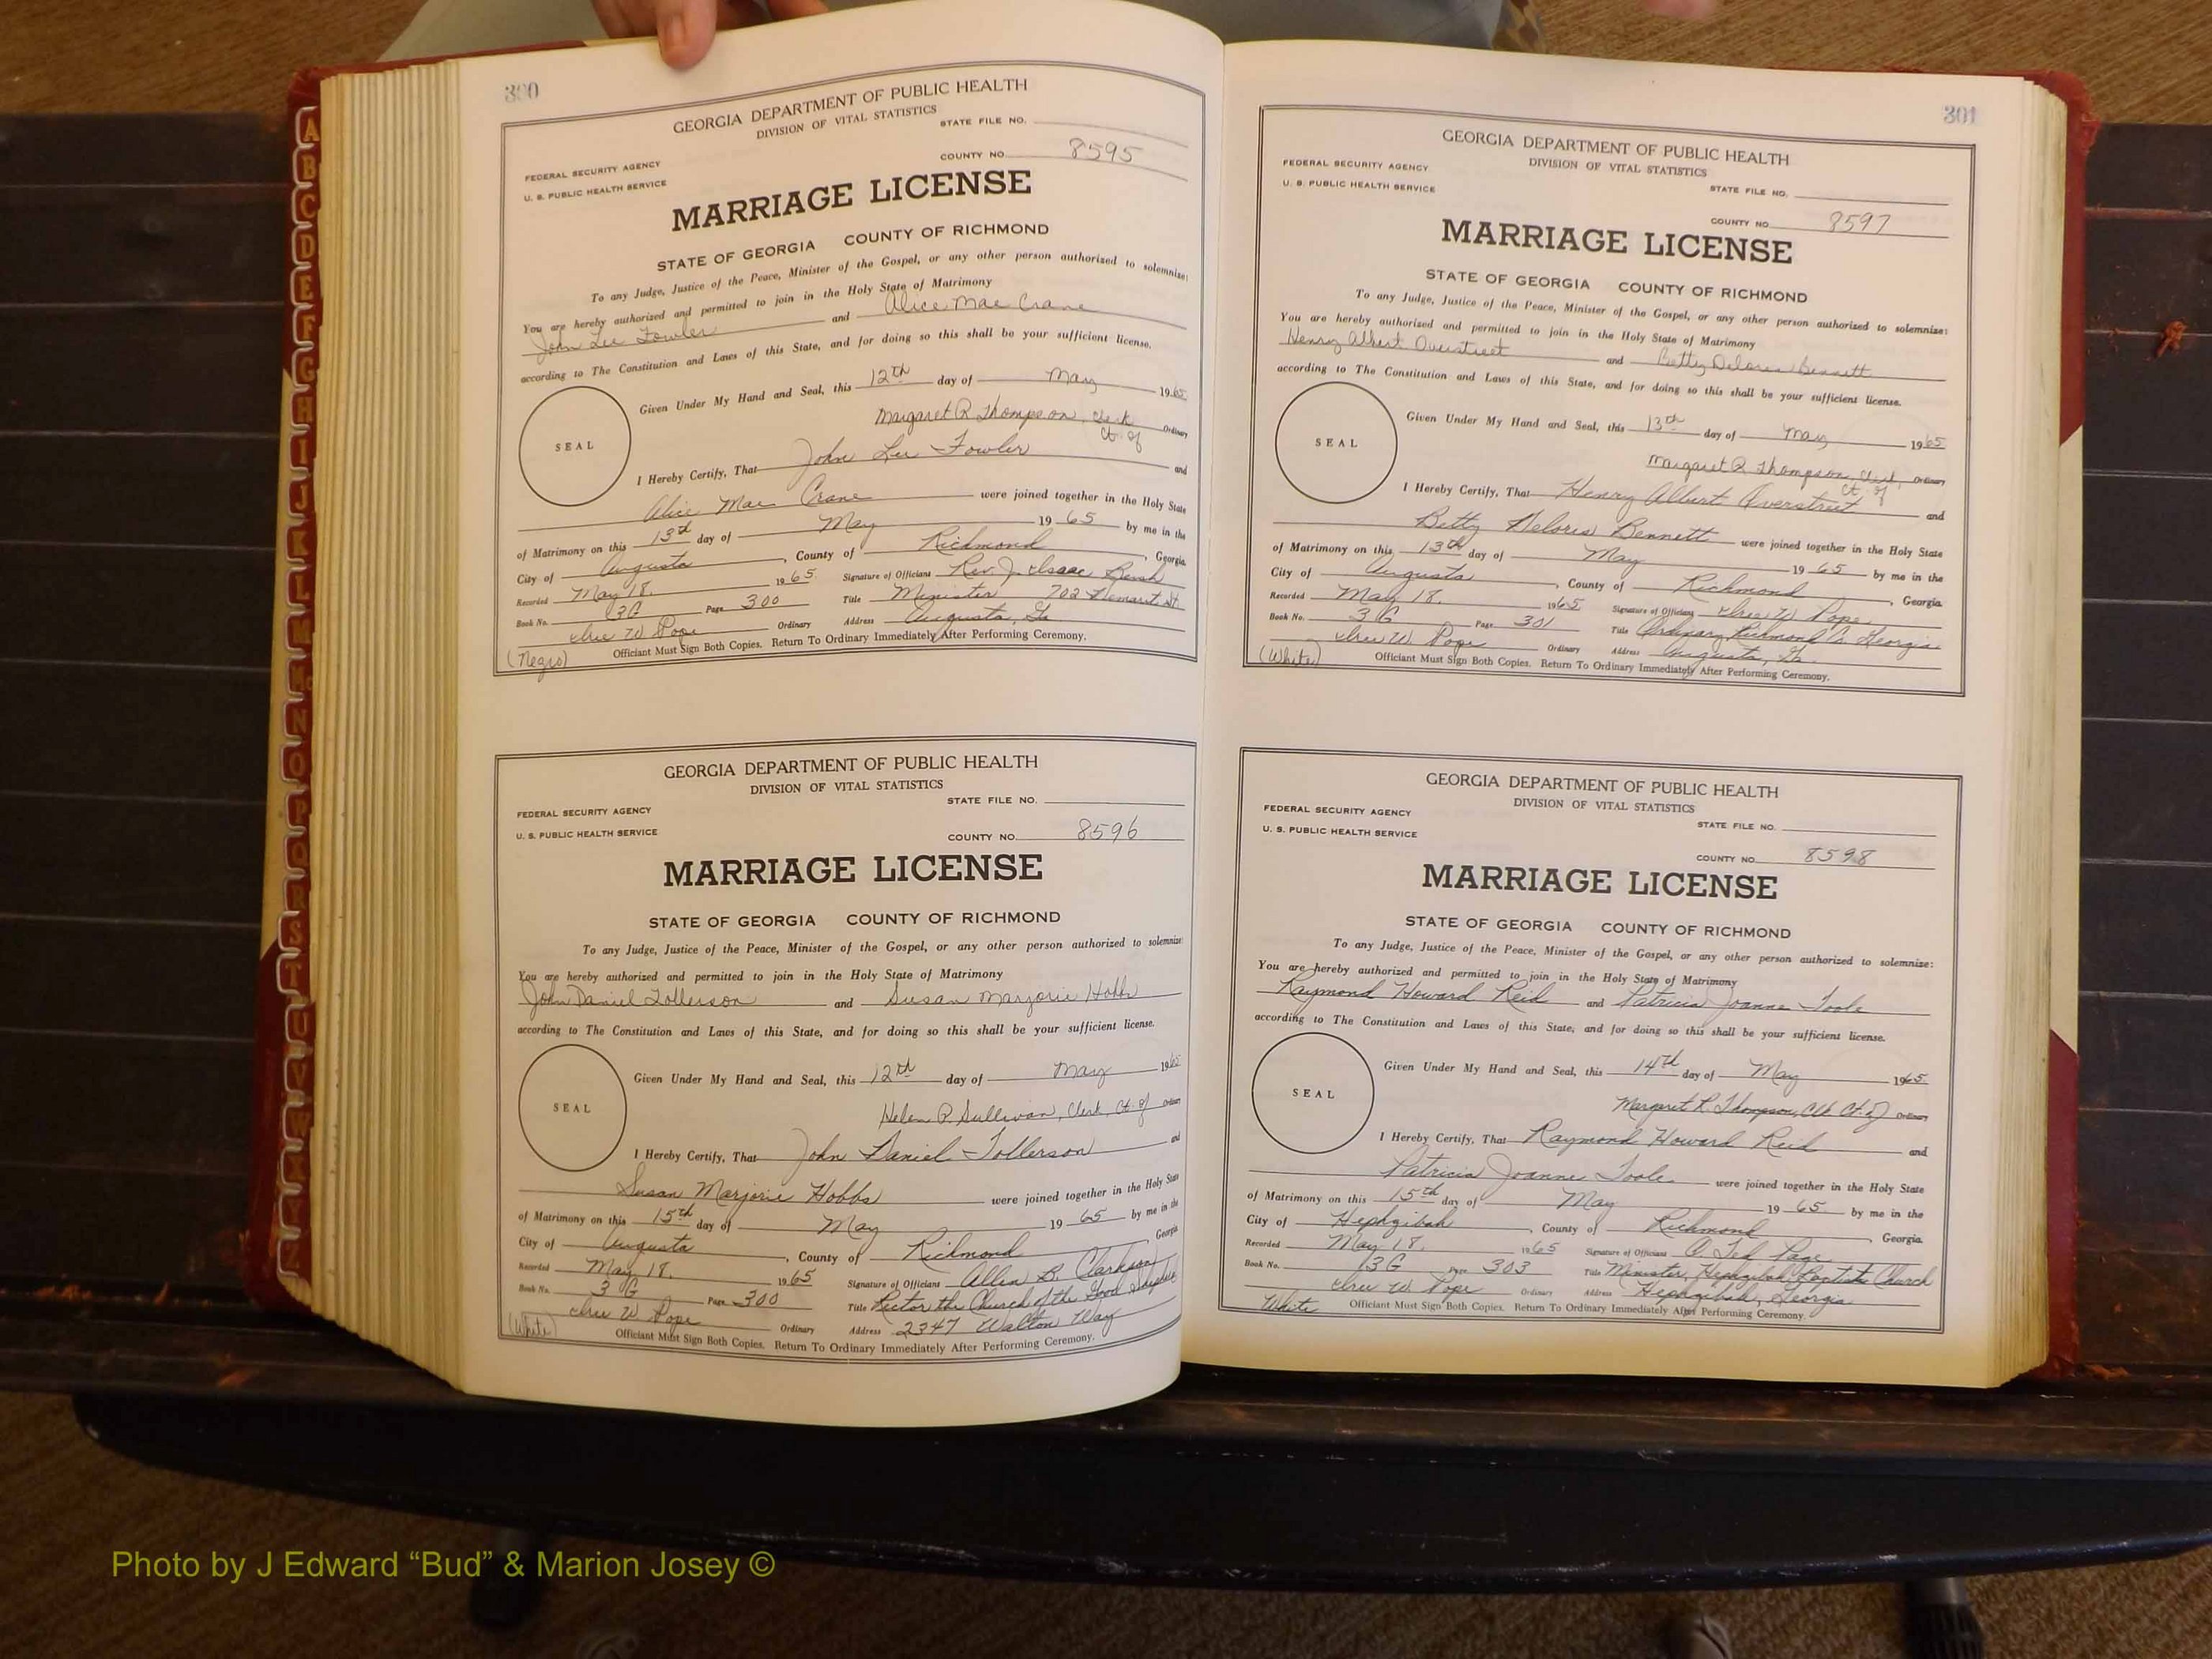 300
GEORGIA DEPARTMENT OF PUBLIC HEALTH
DIVISION OF VITAL STATISTICS
STATE FILE NO.
FEDERAL SECURITY AGENCY
U. S. PUBLIC HEALTH SERVICE
COUNTY NO. 8595
MARRIAGE LICENSE
STATE OF GEORGIA COUNTY OF RICHMOND
To any Judge, Justice of the Peace, Minister of the Gospel, or any other person authorized to solemnize:
You are hereby authorized and permitted to join in the Holy State of Matrimony
John Lee Fowler and Alice Mae Crane
according to The Constitution and Laws of this State, and for doing so this shall be your sufficient license.
Given Under My Hand and Seal, this 12th day of May 1965
Margaret R Thompson, Clerk Ct. of Ordinary
SEAL
I Hereby Certify, That John Lee Fowler and
Alice Mae Crane were joined together in the Holy State
of Matrimony on this 13th day of May 19 65 by me in the
City of Augusta, County of Richmond, Georgia.
Recorded May 18, 1965 Signature of Officiant Rev. J. Isaac
Book No. 3G Page 300 Title Minister 702
W Pope Ordinary Address Augusta, Ga
(Negro) Officiant Must Sign Both Copies. Return To Ordinary Immediately After Performing Ceremony.
GEORGIA DEPARTMENT OF PUBLIC HEALTH
DIVISION OF VITAL STATISTICS
STATE FILE NO.
FEDERAL SECURITY AGENCY
U. S. PUBLIC HEALTH SERVICE
COUNTY NO. 8596
MARRIAGE LICENSE
STATE OF GEORGIA COUNTY OF RICHMOND
To any Judge, Justice of the Peace, Minister of the Gospel, or any other person authorized to solemnize:
You are hereby authorized and permitted to join in the Holy State of Matrimony
John Daniel Tollerson and Susan Marjorie Hobbs
according to The Constitution and Laws of this State, and for doing so this shall be your sufficient license.
Given Under My Hand and Seal, this 12th day of May 1965
Helen P Sullivan, Clerk, Ct of Ordinary
SEAL
I Hereby Certify, That John Daniel Tollerson and
Susan Marjorie Hobbs were joined together in the Holy State
of Matrimony on this 15th day of May 19 65 by me in the
City of Augusta, County of Richmond Georgia
Recorded May 18, 1965 Signature of Officiant Allen B. Clarkson
Book No. 3 G Page 300 Title Rector the Church of the Good Shepherd
W Pope Ordinary Address 2347 Walton Way
(White) Officiant Must Sign Both Copies. Return To Ordinary Immediately After Performing Ceremony.
301
GEORGIA DEPARTMENT OF PUBLIC HEALTH
DIVISION OF VITAL STATISTICS
FEDERAL SECURITY AGENCY
U. S. PUBLIC HEALTH SERVICE
STATE FILE NO.
COUNTY NO. 8597
MARRIAGE LICENSE
STATE OF GEORGIA COUNTY OF RICHMOND
To any Judge, Justice of the Peace, Minister of the Gospel, or any other person authorized to solemnize:
You are hereby authorized and permitted to join in the Holy State of Matrimony
Henry Albert Overstreet and Betty Delores Bennett
according to The Constitution and Laws of this State, and for doing so this shall be your sufficient license.
Given Under My Hand and Seal, this 13th day of May 1965
Margaret R Thompson, Clerk, Ct. of Ordinary
SEAL
I Hereby Certify, That Henry Albert Overstreet and
Betty Delores Bennett were joined together in the Holy State
of Matrimony on this 13th day of May 19 65 by me in the
City of Augusta, County of Richmond, Georgia.
Recorded May 18, 1965 Signature of Officiant W Pope
Book No. 3 G Page 301 Title Ordinary, Richmond Co. Georgia
W Pope Ordinary Address Augusta, Ga.
(White) Officiant Must Sign Both Copies. Return To Ordinary Immediately After Performing Ceremony.
GEORGIA DEPARTMENT OF PUBLIC HEALTH
DIVISION OF VITAL STATISTICS
FEDERAL SECURITY AGENCY
U. S. PUBLIC HEALTH SERVICE
STATE FILE NO.
COUNTY NO. 8598
MARRIAGE LICENSE
STATE OF GEORGIA COUNTY OF RICHMOND
To any Judge, Justice of the Peace, Minister of the Gospel, or any other person authorized to solemnize:
You are hereby authorized and permitted to join in the Holy State of Matrimony
Raymond Howard Reid and Patricia Joanne Toole
according to The Constitution and Laws of this State, and for doing so this shall be your sufficient license.
Given Under My Hand and Seal, this 14th day of May 1965
Margaret R. Thompson, Clk. Ct. of Ordinary
SEAL
I Hereby Certify, That Raymond Howard Reid and
Patricia Joanne Toole were joined together in the Holy State
of Matrimony on this 15th day of May 19 65 by me in the
City of Hephzibah, County of Richmond, Georgia.
Recorded May 18, 1965 Signature of Officiant O. Ted Page
Book No. 3G Page 303 Title Minister, Hephzibah Baptist Church
W. Pope Ordinary Address Hephzibah, Georgia
White Officiant Must Sign Both Copies. Return To Ordinary Immediately After Performing Ceremony.
A
B
C
D
E
F
G
H
I
J
K
L
M
Mc
N
O
P
Q
R
S
T
U
V
W
Photo by J Edward “Bud” & Marion Josey ©